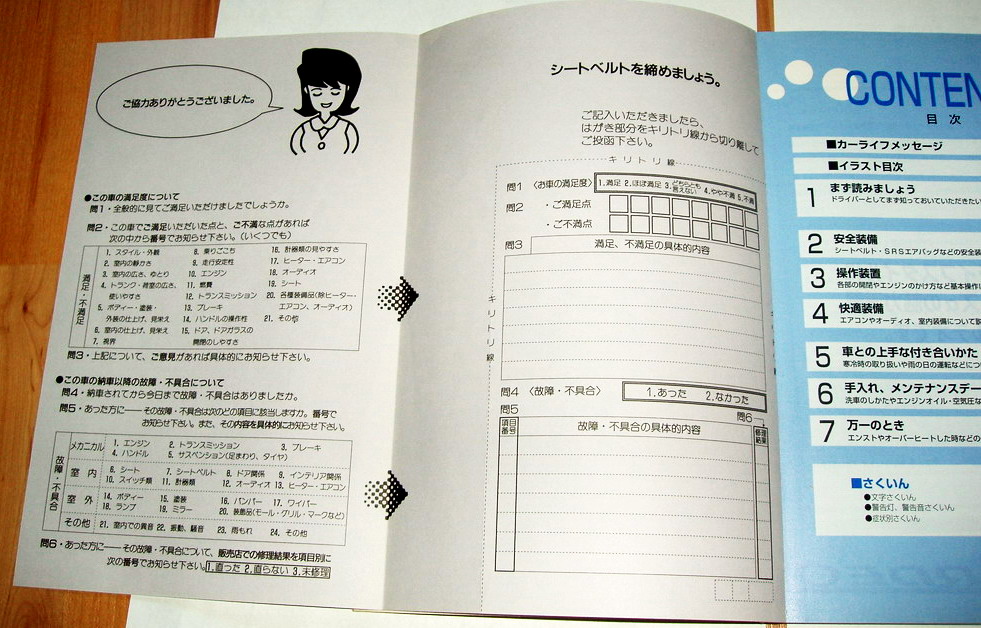 ご協力ありがとうございました。
●この車の満足度について
問1・全般的に見てご満足いただけましたでしょうか。
問2・この車でご満足いただいた点と、ご不満な点があれば
次の中から番号でお知らせ下さい。(いくつでも)
満足・不満足
1. スタイル・外観
2. 室内の静かさ
3. 室内の広さ、ゆとり
4. トランク・荷室の広さ、
使いやすさ
5. ボディー・塗装・
外装の仕上げ、見栄え
6. 室内の仕上げ、見栄え
7. 視界
8. 乗りごこち
9. 走行安定性
10. エンジン
11. 燃費
12. トランスミッション
13. ブレーキ
14. ハンドルの操作性
15. ドア、ドアガラスの
開閉のしやすさ
16. 計器類の見やすさ
17. ヒーター・エアコン
18. オーディオ
19. シート
20. 各種装備品(除ヒーター・
エアコン、オーディオ)
21. その他
問3・上記について、ご意見があれば具体的にお知らせ下さい。
●この車の納車以降の故障・不具合について
問4・納車されてから今日まで故障・不具合はありましたか。
問5・あった方に――その故障・不具合は次のどの項目に該当しますか。番号で
お知らせ下さい。また、その内容を具体的にお知らせ下さい。
故障・不具合
メカニカル 1. エンジン 2. トランスミッション 3. ブレーキ
4. ハンドル 5. サスペンション(足まわり、タイヤ)
室内 6. シート 7. シートベルト 8. ドア関係 9. インテリア関係
10. スイッチ類 11. 計器類 12. オーディオ 13. ヒーター・エアコン
室外 14. ボディー 15. 塗装 16. バンパー 17. ワイパー
18. ランプ 19. ミラー 20. 装飾品(モール・グリル・マークなど)
その他 21. 室内での異音 22. 振動、騒音 23. 雨もれ 24. その他
問6・あった方に――その故障・不具合について、販売店での修理結果を項目別に
次の番号でお知らせ下さい。1.直った 2.直らない 3.未修理
シートベルトを締めましょう。
ご記入いただきましたら、
はがき部分をキリトリ線から切り離して
ご投函下さい。
キリトリ線
キリトリ線
問1 〈お車の満足度〉 1.満足 2.ほぼ満足 3.どちらとも言えない 4.やや不満 5.不満
問2 ・ご満足点
・ご不満点
問3 満足、不満足の具体的内容
問4 〈故障・不具合〉 1.あった 2.なかった
問5
問6
項目番号 故障・不具合の具体的内容 修理結果
CONTEN
目 次
■カーライフメッセージ
■イラスト目次
1 まず読みましょう
ドライバーとしてまず知っておいていただきたい
2 安全装備
シートベルト・SRSエアバッグなどの安全装
3 操作装置
各部の開閉やエンジンのかけ方など基本操作
4 快適装備
エアコンやオーディオ、室内装備について説
5 車との上手な付き合いかた
寒冷時の取り扱いや雨の日の運転などにつ
6 手入れ、メンテナンスデー
洗車のしかたやエンジンオイル・空気圧な
7 万一のとき
エンストやオーバーヒートした時などの
■さくいん
●文字さくいん
●警告灯、警告音さくいん
●症状別さくいん